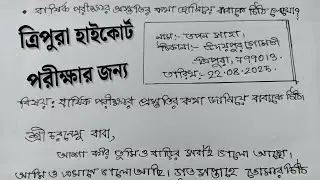 • বার্ষিক পরীক্ষার প্রস্তুতির কথা জানিয়ে বাবাকে চিঠি লেখো?
ত্রিপুরা হাইকোর্ট
পরীক্ষার জন্য
নাম:- তপন সাহা।
ঠিকানা:- উদয়পুর গোমতী
ত্রিপুরা, ৭৯৯০১৩.
তারিখ:- 22.08.2025.
বিষয়: বার্ষিক পরীক্ষার প্রস্তুতির কথা জানিয়ে বাবাকে চিঠি
শ্রী চরনেষু বাবা,
আশা করি তুমি ও বাড়ির সবাই ভালো আছো।
আমি ও এখানে ভালো আছি। গত সপ্তাহে তোমার চিঠি